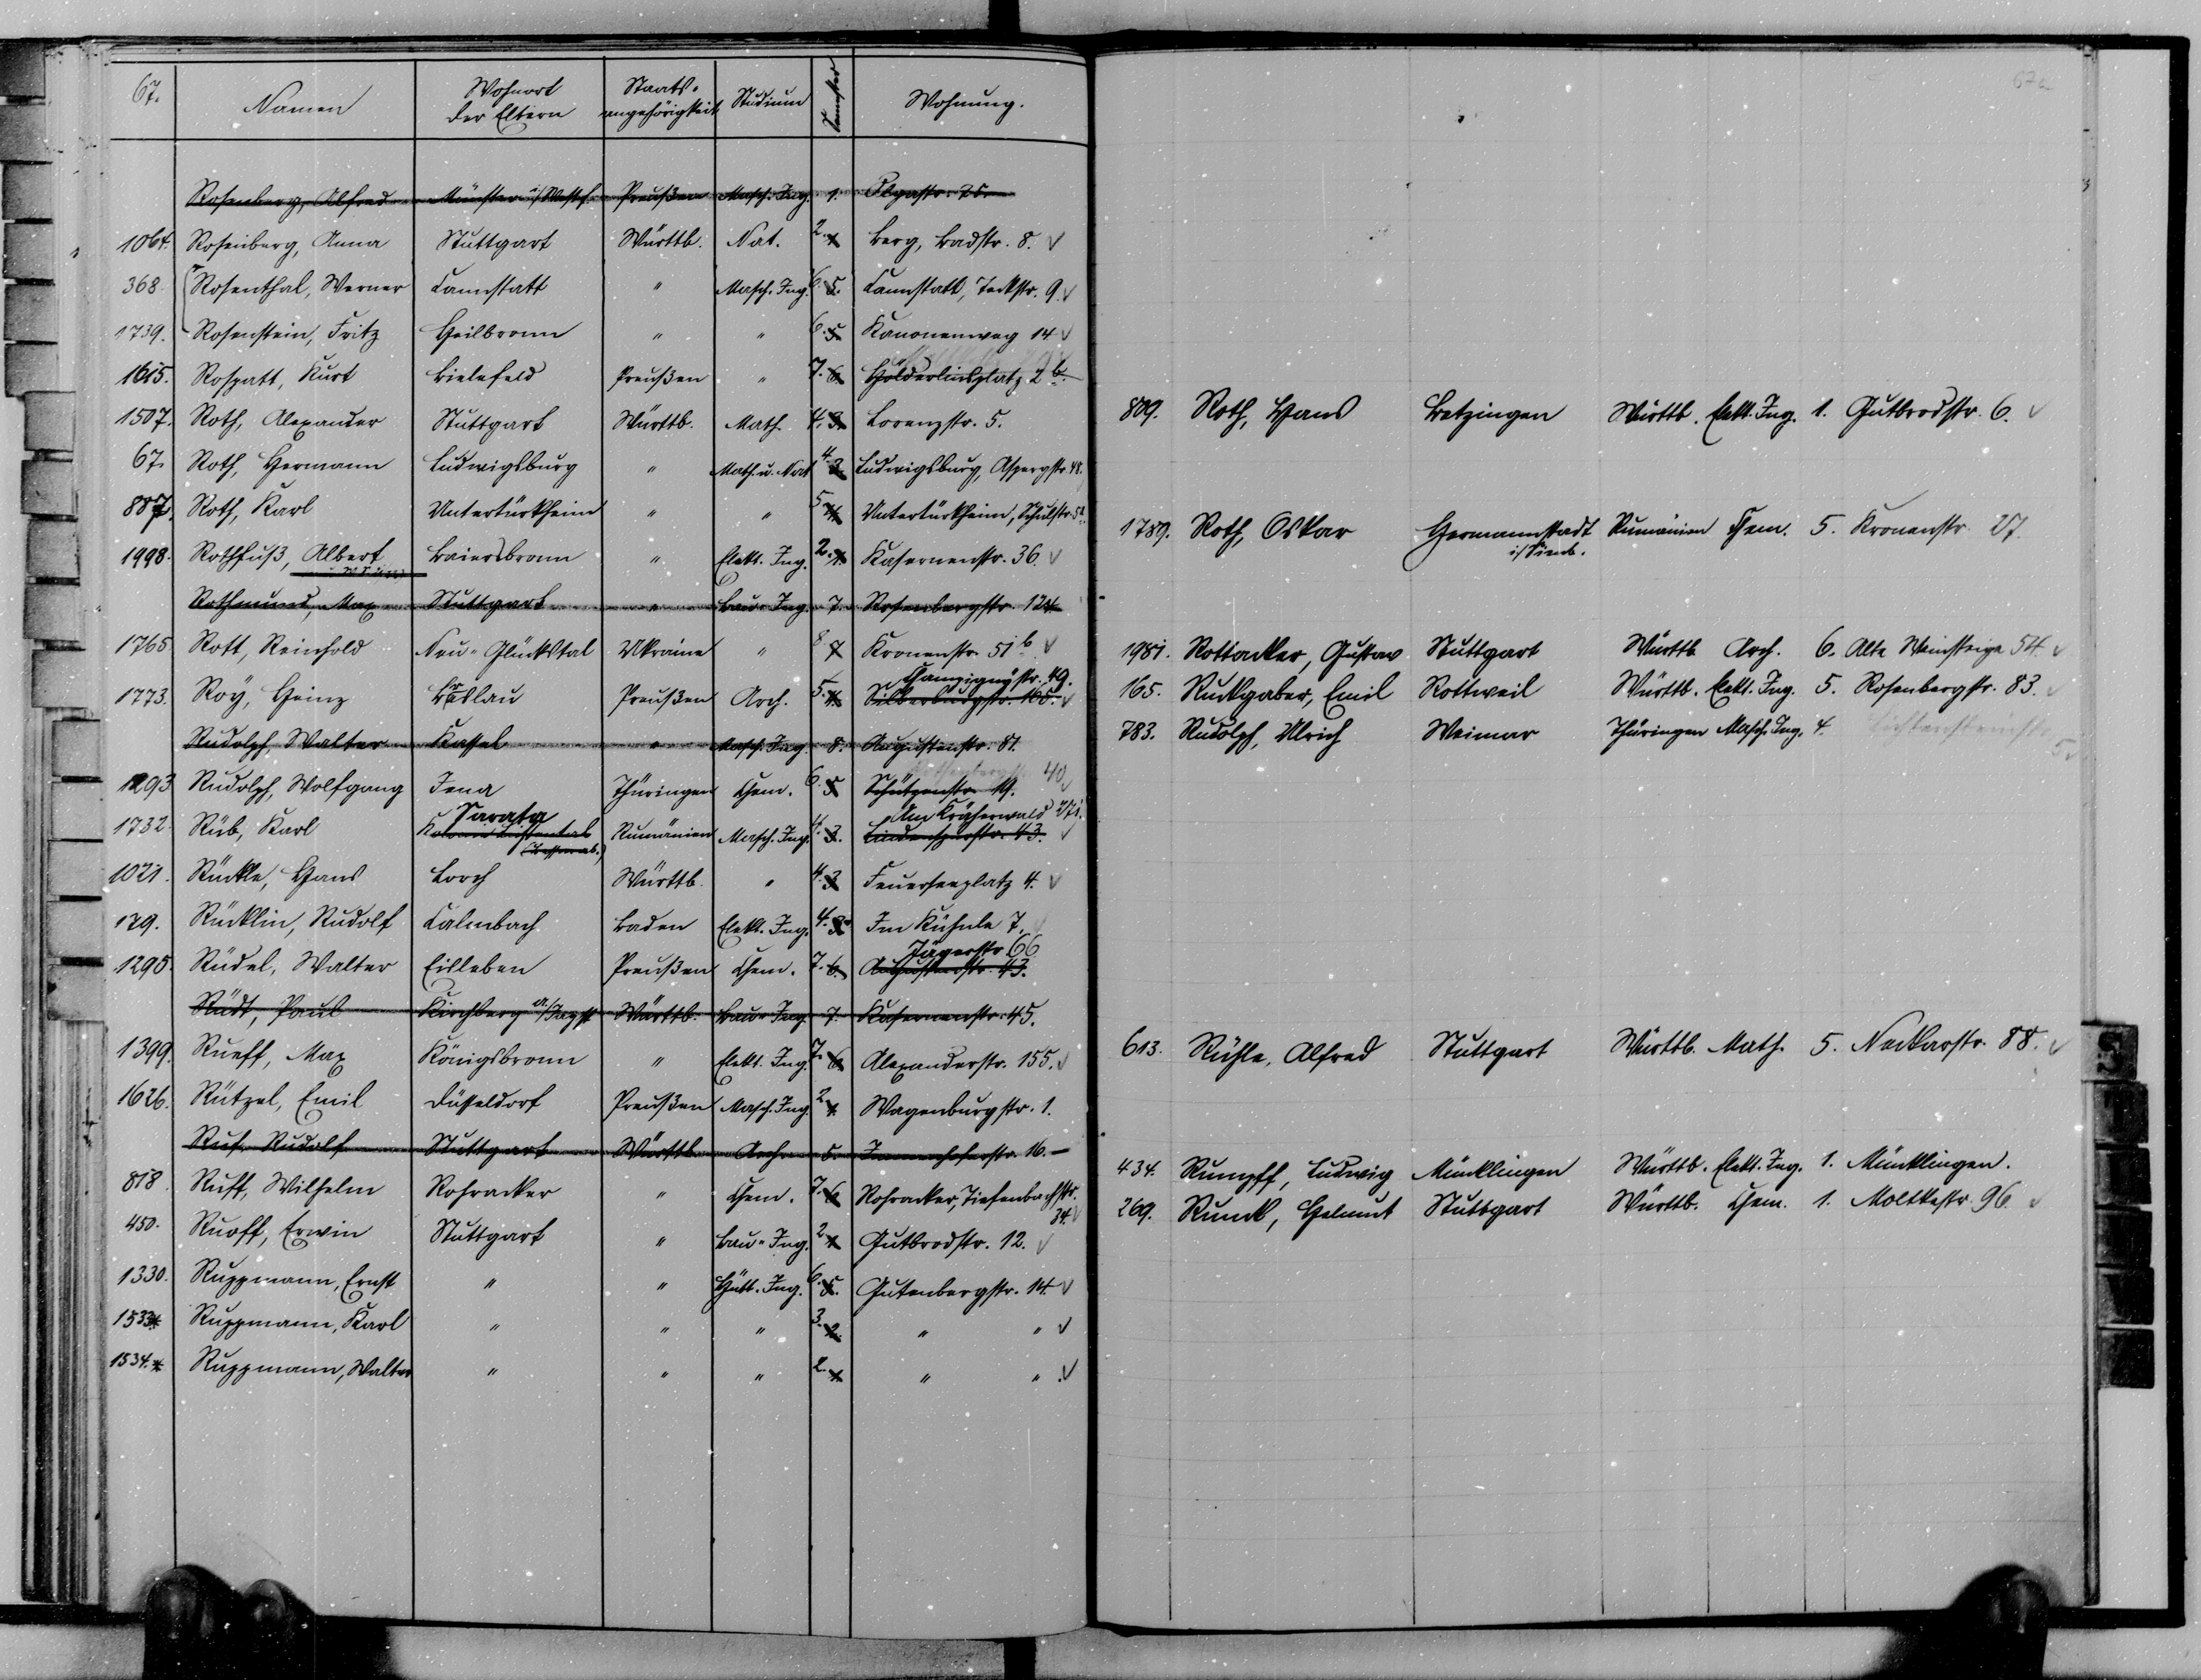 67. Namen Wohnort der Eltern Staats-angehörigkeit Studium Semester Wohnung.
Rosenberg, Alfred Münster i/Westf. Preußen Masch. Ing. 1. Olgastr. 75.
1064. Rosenberg, Anna Stuttgart Württb. Nat. 2. 1. Berg, Badstr. 8. √
368. Rosenthal, Werner Cannstatt " Masch. Ing. 6. 5. Cannstatt, Teckstr. 9. √
1739. Rosenstein, Fritz Heilbronn " " 6. 5. Kanonenweg 14 √
1615. Rospatt, Kurt Bielefeld Preußen " 7. 6. Hölderlinsplatz 2 b.
1507. Roth, Alexander Stuttgart Württb. Math. 4. 3. Lorenzstr. 5.
67. Roth, Hermann Ludwigsburg " Math. u. Nat 4. 3. Ludwigsburg, Aspergstr. 48.
887. Roth, Karl Untertürkheim " " 5. 4. Untertürkheim, Schulstr. 5a.
1998. Rothfuß, Albert Baiersbronn " Elekt. Ing. 2. 1. Kasernenstr. 36. √
Rothmund, Max Stuttgart " Bau-Ing. 7. Rosenbergstr. 124
1765. Rott, Reinhold Neu-Glückstal Ukraine " 8 7 Kronenstr. 51 b. √
Champignystr. 19.
1773. Roy, Heinz Breslau Preußen Arch. 5. 4. Silberburgstr. 105. √
Rudolph, Walter Kassel " Masch. Ing. 8. Augustenstr. 81.
40
1293 Rudolph, Wolfgang Jena Thüringen Chem. 6. 5 Schützenstr. 19. √
Sarata Am Kräherwald 271.
1732. Rüb, Karl Rumänien Masch. Ing. 4. 3. Lindenspürstr. 43. √
(Bessarab.)
1021. Rückle, Hans Lorch Württb. " 4. 3 Feuerseeplatz 4. √
179. Rücklin, Rudolf Calmbach Baden Elekt. Ing. 4. 3. Im Kühnle 7. √
Jägerstr. 66
1295. Rüdel, Walter Eisleben Preußen Chem. 7. 6. Augustenstr. 43.
Rüdt, Paul Kirchberg a/Jagst Württb. Bau-Ing. 7. Kasernenstr. 45.
1399. Rueff, Max Königsbronn " Elekt. Ing. 7. 6 Alexanderstr. 155. √
1626. Rützel, Emil Düsseldorf Preußen Masch. Ing. 2. 1. Wagenburgstr. 1.
Ruf, Rudolf Stuttgart Württb. Arch. 5. 16.
818. Ruff, Wilhelm Rohracker " Chem. 7. 6 Rohracker, Tiefenbachstr.
34. √
450. Ruoff, Erwin Stuttgart " Bau-Ing. 2. 1 Gutbrodstr. 12. √
1330. Ruppmann, Ernst " " Hütt. Ing. 6. 5. Gutenbergstr. 14. √
1533* Ruppmann, Karl " " " 3. 2. " " √
1534.* Ruppmann, Walter " " " 2. 1 " " √
67a
809. Roth, Hans Betzingen Württb. Elekt. Ing. 1. Gutbrodstr. 6. √
1789. Roth, Oskar Hermannstadt Rumänien Chem. 5. Kronenstr. 27.
i/Sieb.
1981. Rottacker, Gustav Stuttgart Württb. Arch. 6. Alte Weinsteige 54. √
165. Ruckgaber, Emil Rottweil Württb. Elekt. Ing. 5. Rosenbergstr. 83. √
783. Rudolph, Ulrich Weimar Thüringen Masch. Ing. 4. Lichtensteinstr.
5.
613. Rühle, Alfred Stuttgart Württb. Math. 5. Neckarstr. 88. √
434. Rumpff, Ludwig Münklingen Württb. Elekt. Ing. 1. Münklingen.
269. Runck, Helmut Stuttgart Württb. Chem. 1. Moltkestr. 96. √